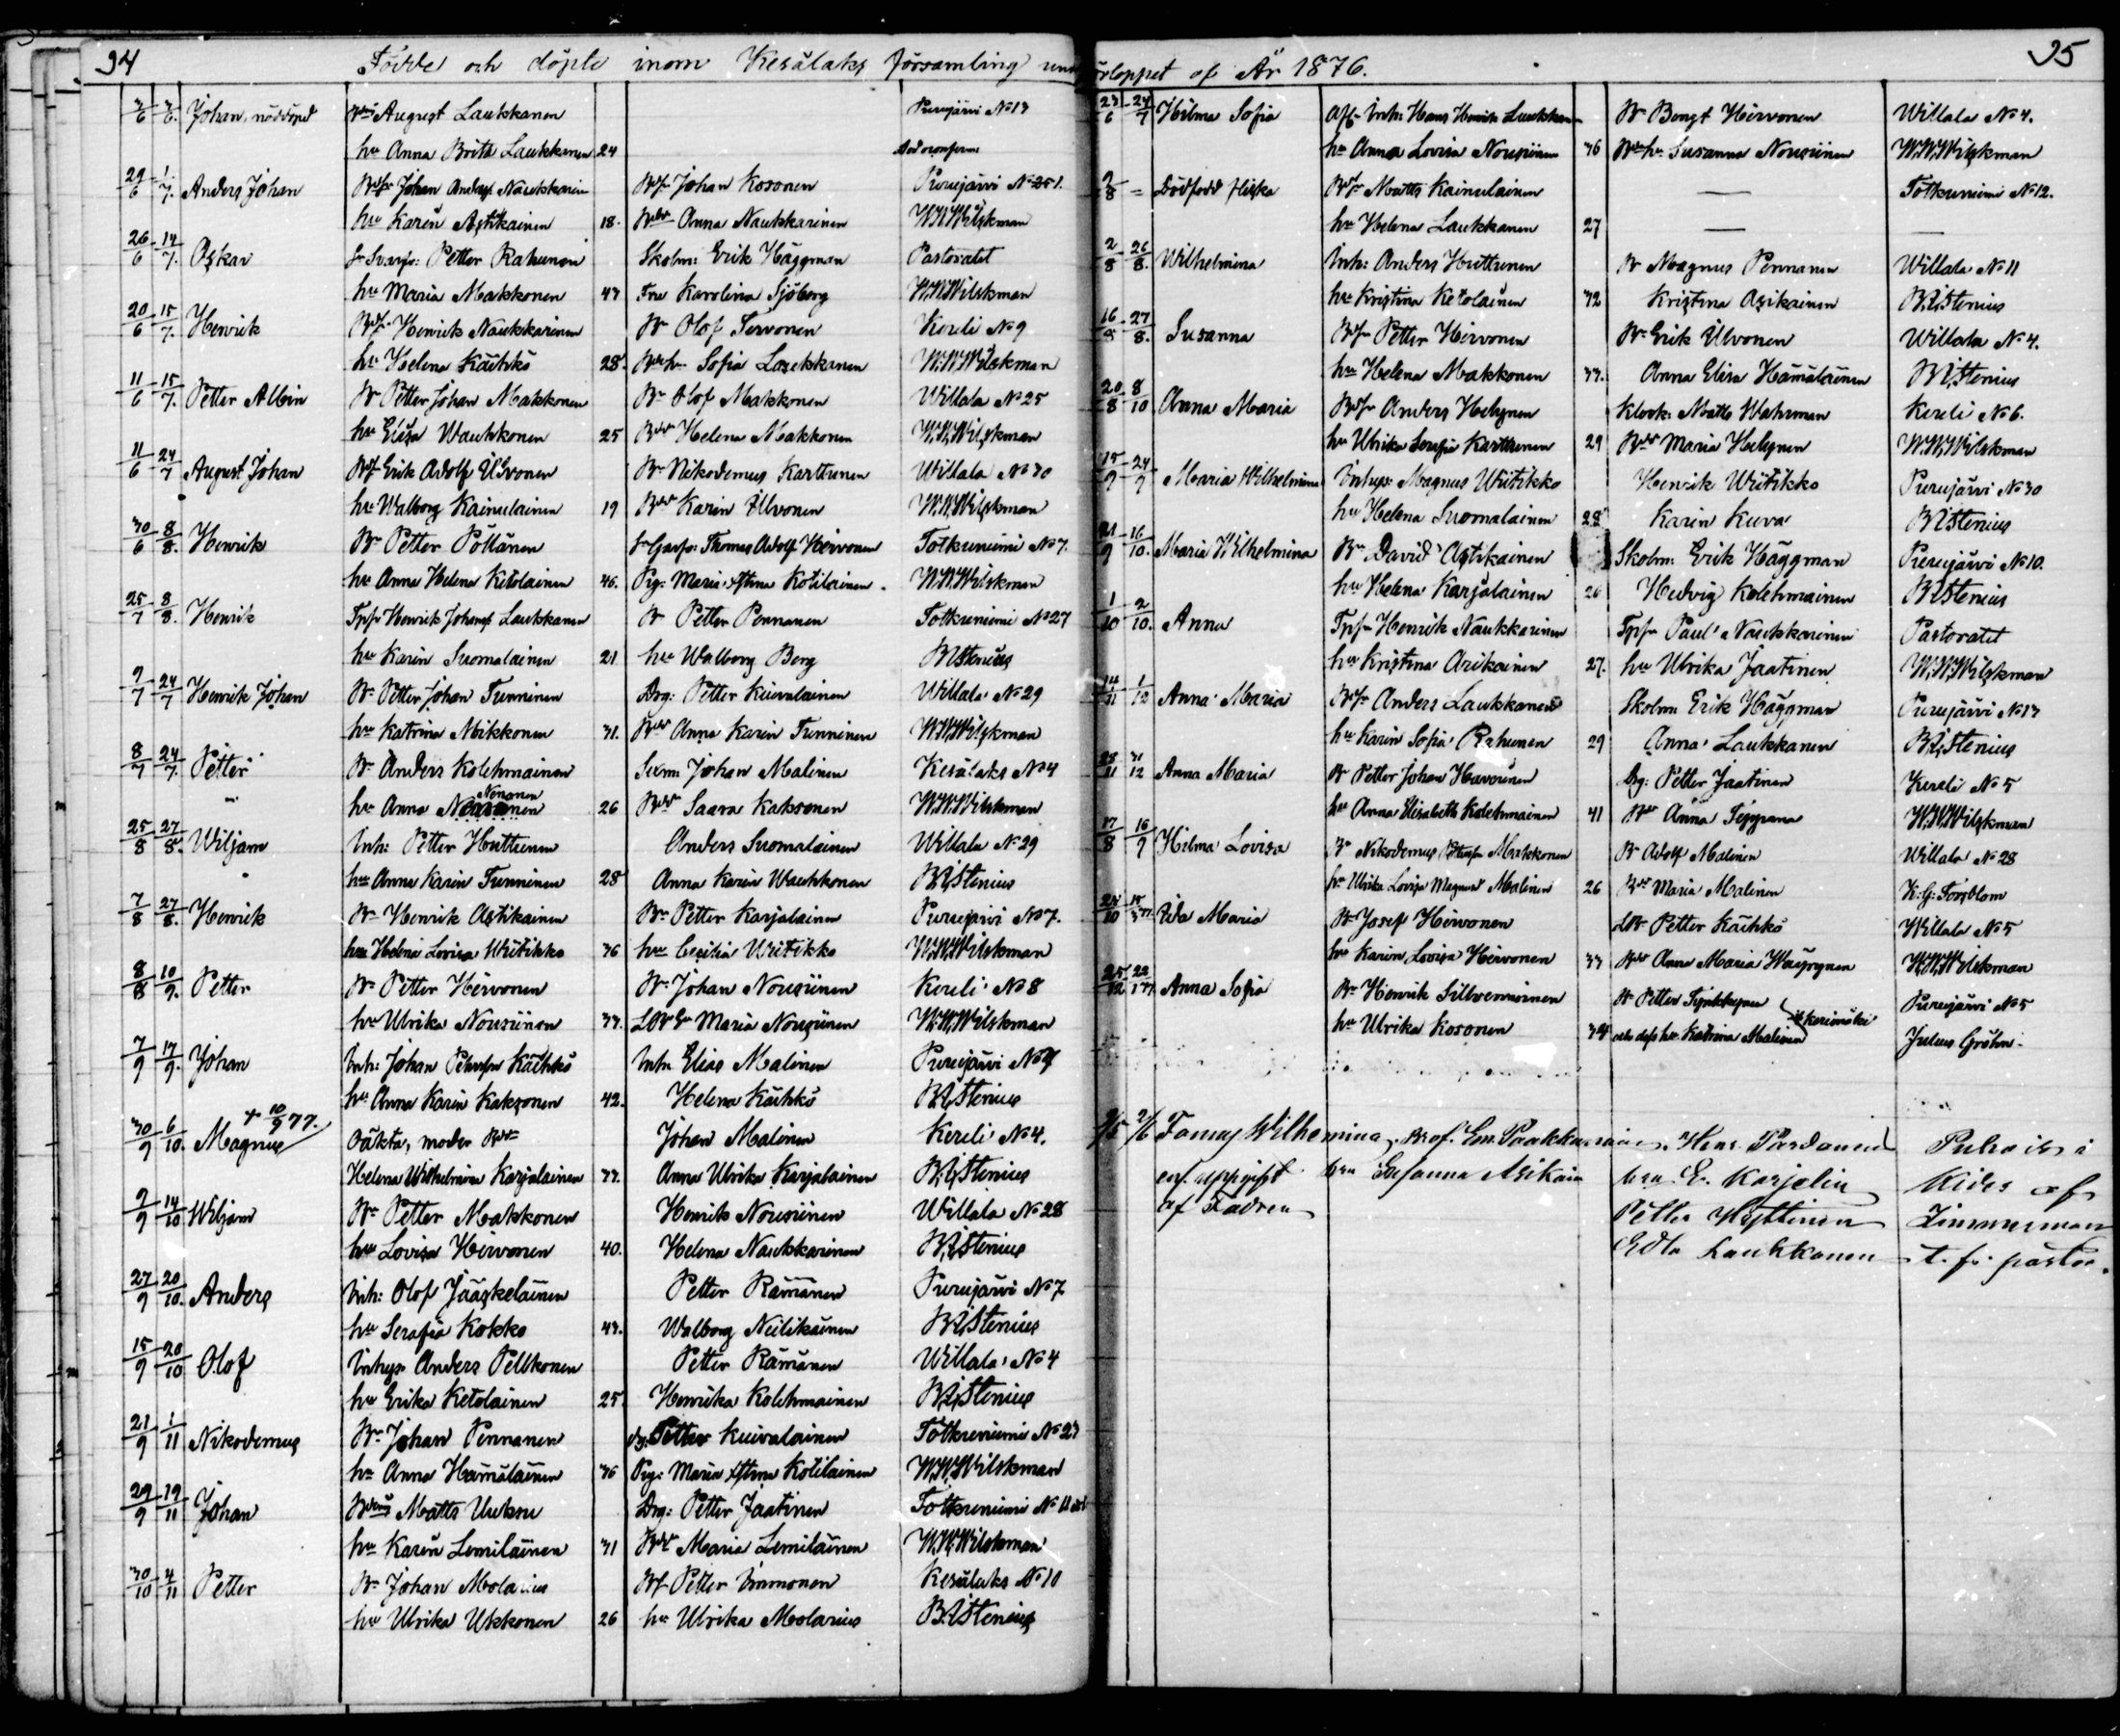 94
Födde och döpte inom Kesälaks församling und
3/6 3/6. Johan, nöddöpt Bdm August Laukkanen Purujärvi No 13
hu Anna Brita Laukkanen 24
29/6 1/7. Anders Johan Bdsr Johan Anders Naukkarin Bsr Johan Kosonen Purujärvi No 25 1.
hu Karin Astikainen 18. Bdr Anna Naukkarinen W.W.Wilskman
26/6 14/7. Oskar fr Svarfr: Petter Rahunen Skolm: Erik Häggman Pastoratet
hu Maria Makkonen 43 Fru Karolina Sjöberg W.W.Wilskman
20/6 15/7. Henrik Bdsr Henrik Naukkarinen Br Olof Tervonen Kereli No 9
hu Helena Käihkö 28. Brhu Sofia Laukkanen W.W.Wilskman
11/6 15/7. Petter Albin Br Petter Johan Makkonen Br Olof Makkonen Willala No 25
hu Elisa Wauhkonen 25 Bdr Helena Makkonen W.W.Wilskman
11/6 24/7 August Johan Bsr Erik Adolf Ulvonen Br Nikodemus Karttunen Willala No 30
hu Walborg Kainulainen 19 Bdr Karin Ulvonen W.W.Wilskman
30/6 8/8. Henrik Br Petter Pöllänen fr Garfr: Thomas Adolf Hirvonen Totkuniemi No 7.
hu Anna Helena Ketolainen 46. Pig: Maria Stina Kotilainen W.W.Wilskman
25/7 8/8. Henrik Tpsr Henrik Johans Laukkanen Br Petter Pennanen Totkuniemi No 27
hu Karin Suomalainen 21 hu Walborg Berg B.A.Stenius
9/7 24/7 Henrik Johan Br Petter Johan Tunninen Drg: Petter Kuivalainen Willala No 29
hu Katrina Mikkonen 31. Bdr Anna Karin Tunninen W.W.Wilskman
8/7 24/7. Petter Br Anders Kolehmainen Sexm: Johan Malinen Kesälaks No 4
Nenonen
hu Anna 26 Bdr Saara Kaksonen W.W.Wilskman
25/8 27/8. Wiljam Inh: Petter Huttunen Anders Suomalainen Willala No 29
hu Anna Karin Tunninen 28 Anna Karin Wauhkonen B.A.Stenius
7/8 27/8. Henrik Br Henrik Astikainen Br Petter Karjalainen Purujärvi No 7.
hu Helena Lovisa Wiitikko 36 hu Cecilia Wiitikko W.W.Wilskman
8/8 10/9. Petter Br Petter Hirvonen Br Johan Nousiinen Kereli No 8
hu Ulrika Nousiinen 33. Maria Nousiinen W.W.Wilskman
7/9 17/9. Johan Inh: Johan Petersson Käihkö Inh: Elias Malinen Purujärvi No 4
hu Anna Karin Kaksonen 42. Helena Käihkö B.A.Stenius
+ 10/9 77.
30/9 6/10. Magnus Oäkta, moder Bdr Johan Malinen Kereli No 4.
Helena Wilhelmina Karjalainen 33. Anna Ulrika Karjalainen B.A.Stenius
9/9 14/10 Wiljam Br Petter Makkonen Henrik Nousiinen Willala No 28
hu Lovisa Hirvonen 40. Helena Naukkarinen B.A.Stenius
27/9 20/10. Anders Inh: Olof Jääskeläinen Petter Rämänen Purujärvi No 7
hu Serafia Kokko 43. Walborg Neilikäinen B.A.Stenius
15/9 20/10 Olof Inhys: Anders Pelkonen Petter Rämänen Willala No 4
hu Erika Ketolainen 25 Henrika Kolehmainen B.A.Stenius
21/9 1/11 Nikodemus Br Johan Pennanen dg: Petter Kuivalainen Totkuniemi No 23
hu Anna Hämäläinen 36 Pig: Maria Stina Kotilainen W.W.Wilskman
29/9 19/11 Johan Matts Uuksu Drg: Petter Jaatinen Totkuniemi No 11
hu Karin Lemiläinen 31 Bdr Maria Lemiläinen W.W.Wilskman
30/10 4/11 Petter Br Johan Molarius Bsr Petter Immonen Kesälaks No 10
hu Ulrika Ukkonen 26 hu Ulrika Molarius B.A.Stenius
95
örloppet af År 1876.
23/6 24/7 Hilma Sofia Afs. Inh: Hans Henrik Laukkan Br Bengt Hirvonen Willala No 4.
hu Anna Lovisa Nousiinen 36 Brhu Susanna Nousiinen W.W.Wilskman
9/8 = Dödfödd flicka Bsr Matts Kainulainen — Totkuniemi No 12.
hu Helena Laukkanen 27 — —
2/8 26/8. Wilhelmina Inh: Anders Huttunen Br Magnus Pennanen Willala No 11
hu Kristina Ketolainen 32 Kristina Asikainen B.A.Stenius
16/8 27/8. Susanna Bsr Petter Hirvonen Br Erik Ulvonen Willala No 4.
hu Helena Makkonen 33. Anna Elisa Hämäläinen B.A.Stenius
20/8 8/10 Anna Maria Bdsr Anders Hekynen Klock: Matts Wahrman Kereli No 6.
hu Ulrika Serafia Karttunen 29 Bdr Maria Hekynen W.W.Wilskman
15/9 24/9 Maria Wilhelmina Inhys: Magnus Wiitikko Henrik Wiitikko Purujärvi No 30
hu Helena Suomalainen 28 Karin Kuva B.A.Stenius
21/9 16/10. Maria Wilhelmina Br David Astikainen Skolm: Erik Häggman Purujärvi No 10.
hu Helena Karjalainen 26 Hedvig Kolehmainen B.A.Stenius
1/10 2/10. Anna Tpsr Henrik Naukkarinen Tpsr Paul Naukkarinen Pastoratet
hu Kristina Asikainen 27. hu Ulrika Jaatinen W.W.Wilskman
14/11 1/12 Anna Maria Bsr Anders Laukkanen Skolm: Erik Häggman Purujärvi No 13
hu Karin Sofia Rahunen 29 Anna Laukkanen B.A.Stenius
28/11 31/12 Anna Maria Br Petter Johan Haverinen Drg: Petter Jaatinen Kereli No 5
hu Anna Elisabeth Kolehmainen 41 Br Anna Teppana W.W.Wilskman
17/8 16/9 Hilma Lovisa Br Nikodemus Makkonen Br Adolf Malinen Willala No 28
hu Ulrika Lovisa Magnus Malinen 26 Bdr Maria Malinen K.G: Forsblom
Ida Maria Br Josef Hirvonen Petter Käihkö Willala No 5
hu Karin Lovisa Hirvonen 33 Bdr Anna Maria Wäyrynen W.W.Wilskman
Anna Sofia Br Henrik Silvennoinen Br Petter Tynkkynen Purujärvi No 5
hu Ulrika Kosonen och dess hu Katrina Malinen Kerimäki Julius Gröhn
9/5 2/6 Fanny Wilhelmina, Prof. Em. Paakkunainen, Henr. Pardanen i
enl. uppgift hru Susanna Asikain hru E. Karjalin Kides af
af Fadren Petter Hyttinen Zimmerman
Edla Laukkanen t. f. pastor.